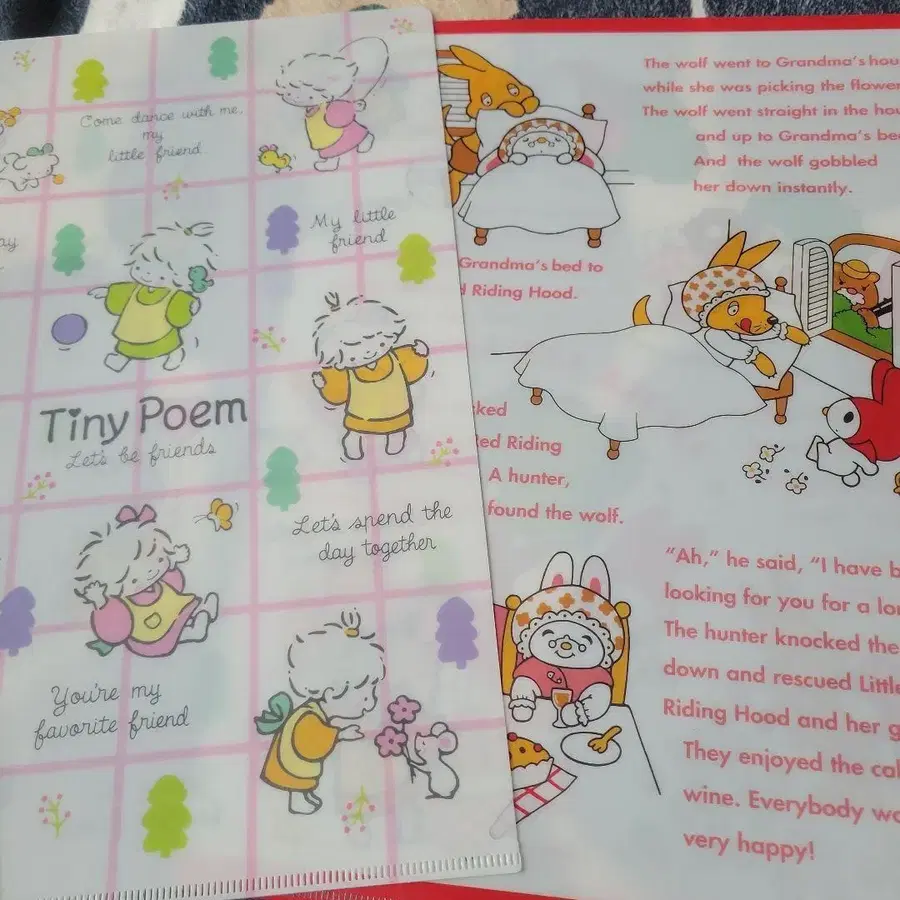 Come dance with me,
my
little friend
My little
friend
Tiny Poem
Let's be friends
Let's spend the
day together
You're my
favorite friend
The wolf went to Grandma's hou
while she was picking the flower
The wolf went straight in the hou
and up to Grandma's be
And the wolf gobbled
her down instantly.
Grandma's bed to
Riding Hood.
ked
ed Riding
A hunter,
found the wolf.
"Ah," he said, "I have b
looking for you for a lo
The hunter knocked the
down and rescued Little
Riding Hood and her g
They enjoyed the ca
wine. Everybody wa
very happy!